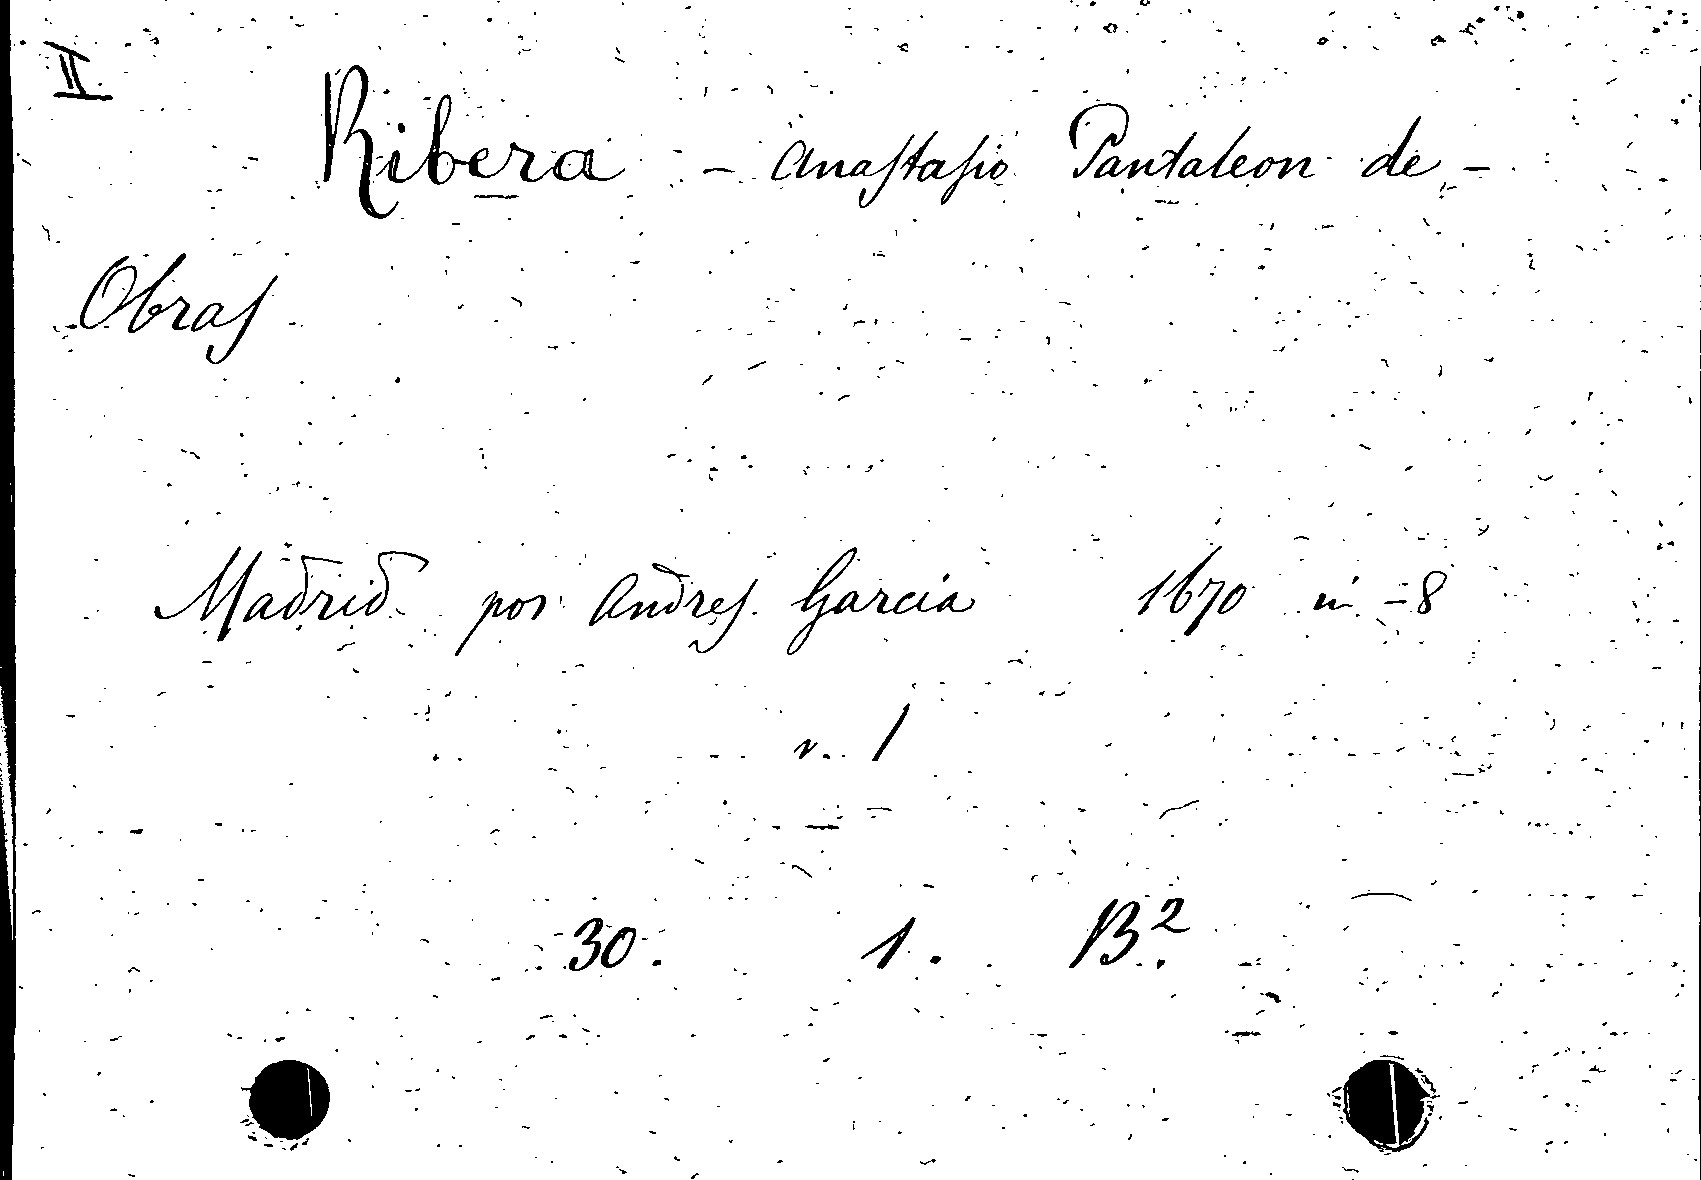 II
Ribera - Anastasio Pantaleon de -
Obras
Madrid por Andres Garcia 1670 in -8
v. 1
30. 1. B²